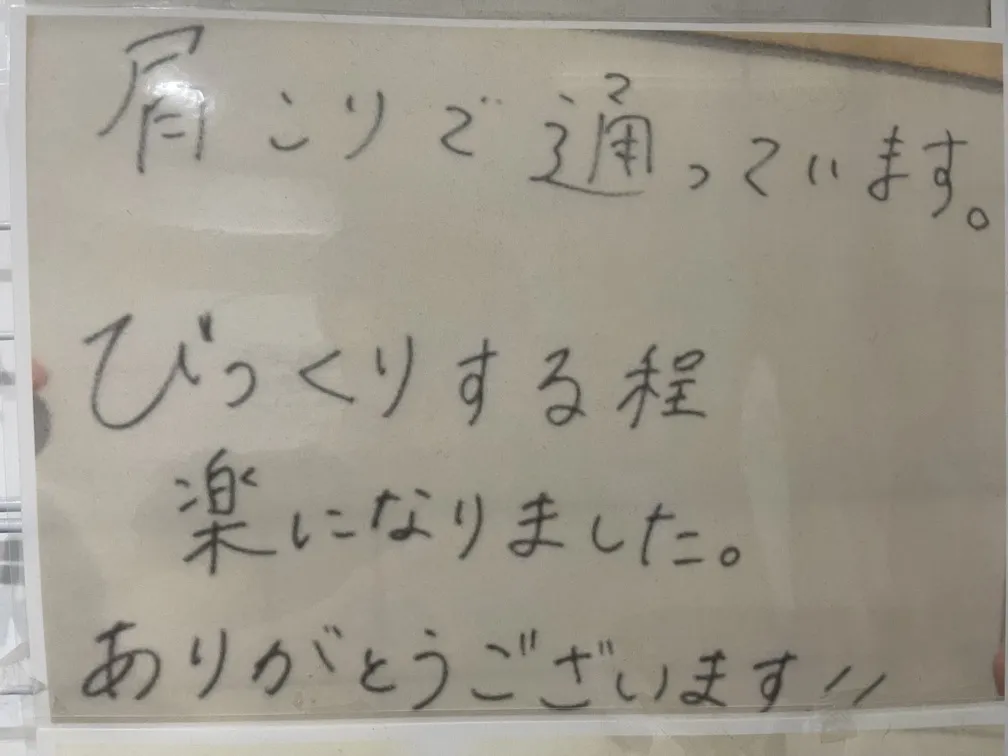 肩こりで通っています。
びっくりする程
楽になりました。
ありがとうございます!!